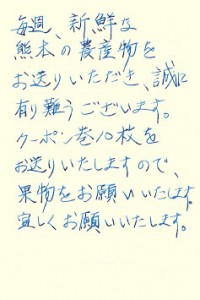 毎週、新鮮な
熊本の農産物を
お送りいただき、誠に
有り難うございます。
クーポン巻10枚を
お送りいたしますので、
果物をお願いいたします。
宜しくお願いいたします。